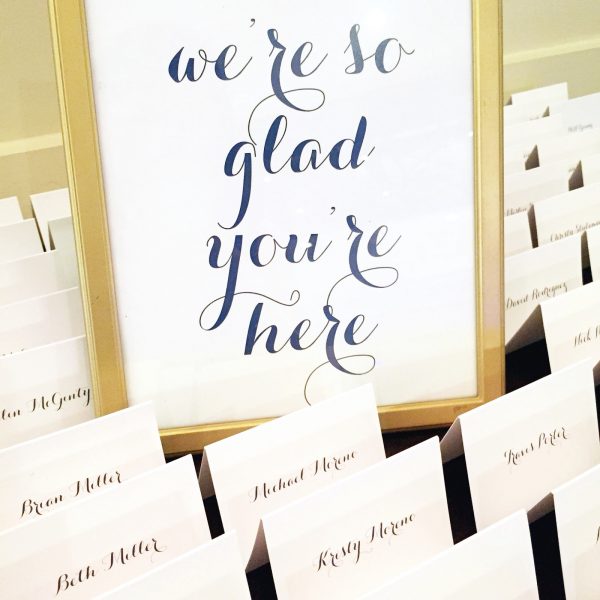 we're so
glad
you're
here
McGenty
Brian Miller
Beth Miller
Michael Moreno
Kristy Moreno
Porter
David Rodriguez
Christy